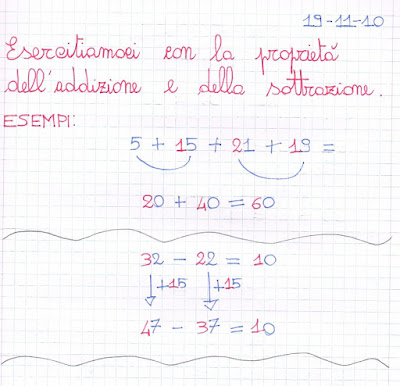 19-11-10
Esercitiamoci con la proprietà
dell'addizione e della sottrazione.
ESEMPI:
5 + 15 + 21 + 19 =
20 + 40 = 60
32 - 22 = 10
+15 +15
47 - 37 = 10